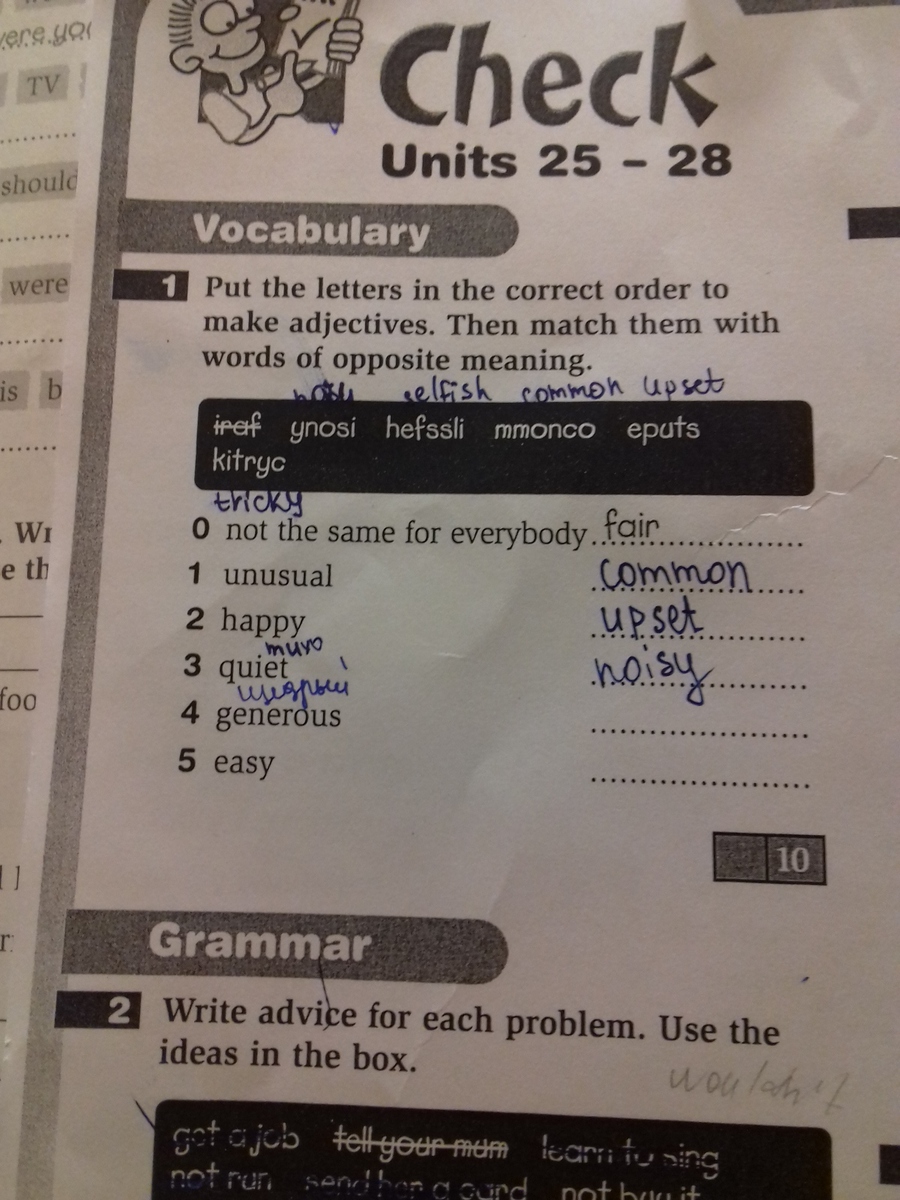 Check
Units 25 – 28
Vocabulary
1 Put the letters in the correct order to
make adjectives. Then match them with
words of opposite meaning.
selfish common upset
iraf ynosi hefssli mmonco eputs
kitryc
tricky
0 not the same for everybody fair
1 unusual common
2 happy upset
тихо
3 quiet noisy
щедрый
4 generous
5 easy
10
Grammar
2 Write advice for each problem. Use the
ideas in the box.
get a job tell your mum learn to sing
not run send her a card not buy it
TV
should
were
is b
. Wr
e th
foo